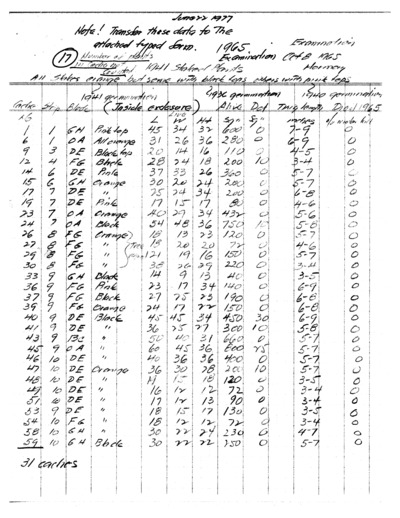 June 22 1977
Note! Transfer these data to The
attached typed form. 1965 Examination
17 Number of Plants Examination Oct 8 1965
Wild Station Plants Morney
All States orange but some with black tops others with pink tops
1941 germination 1942 germination 1942 germination
Cache Strp Block (Inside exclosure) Alive Def Twig length Died 1965
No L W Ht Sq" Sq" inches % winter kill
1 1 GH Pink top 45 34 32 600 0 7-9 0
6 1 OA All orange 31 26 36 280 0 6-9 0
9 3 DE Black top 20 14 16 110 0 4-5 0
12 4 FG Black 28 24 18 200 10 3-4 0
14 6 DE Pink 37 33 26 360 0 5-7 0
15 6 GH Orange 30 20 24 200 0 5-7 0
17 7 DE " 25 24 34 200 0 6-8 0
19 7 DE Pink 17 15 17 80 0 4-6 0
23 7 OA Orange 40 29 34 432 0 5-6 0
24 7 OA Black 54 48 36 750 10 5-8 0
26 8 FG Orange 18 13 23 120 0 5-7 0
27 8 FG " 18 20 20 72 0 4-6 0
29 8 FG " 21 19 16 150 0 5-7 0
30 8 FG " 220 0 3-4 0
33 9 GH Black 14 9 13 40 0 3-5 0
36 9 FG Pink 23 17 34 140 0 6-9 0
37 9 FG Black 27 25 23 190 0 6-8 0
39 9 FG Orange 24 17 22 150 0 6-8 0
40 9 DE Black 45 45 34 450 30 6-9 0
41 9 DE " 36 25 27 300 10 5-8 0
43 9 " 50 40 31 660 0 5-7 0
45 9 OA " 60 45 36 800 25 5-7 0
46 10 DE " 40 36 36 400 0 5-7 0
47 10 DE Orange 36 30 28 200 10 5-7 0
48 10 DE " 15 18 120 0 3-5 0
49 10 DE " 16 12 12 72 0 3-4 0
51 10 DE " 17 12 13 90 0 3-4 0
53 9 DE " 18 15 17 130 0 3-5 0
54 10 FG " 18 12 12 72 0 3-4 0
58 10 GH " 30 22 24 230 0 4-7 0
59 10 GH Black 30 22 22 150 0 5-7 0
31 caches